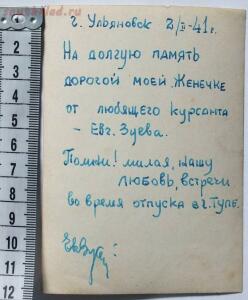 г. Ульяновск 2/II-41 г.
На долгую память
дорогой моей Женечке
от любящего курсанта
- Евг. Зуева.
Помни! милая, нашу
любовь, встречи
во время отпуска в г. Туле.
1
2
3
4
5
6
7
8
9
10
11
12